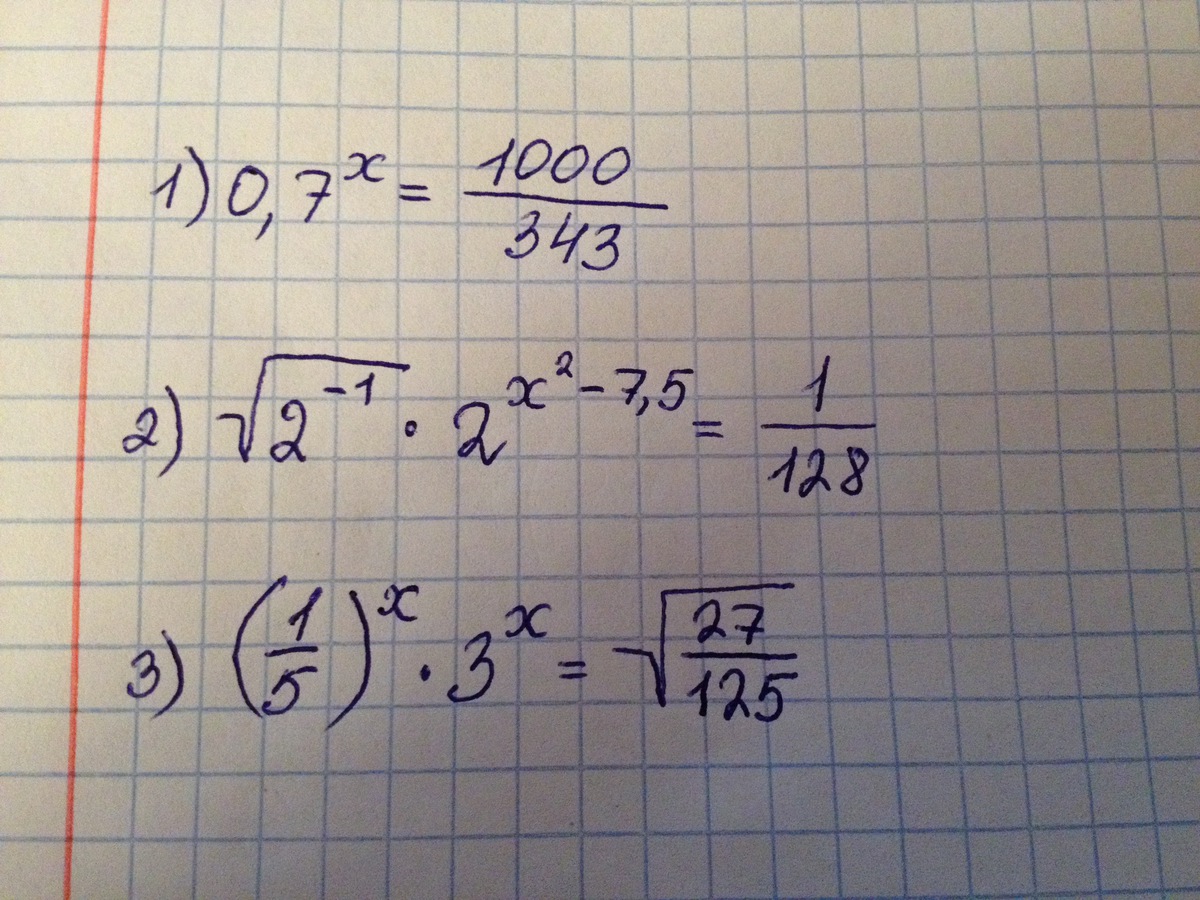 1) 0,7^x = 1000/343
2) √(2^-1) · 2^(x^2-7,5) = 1/128
3) (1/5)^x · 3^x = √(27/125)